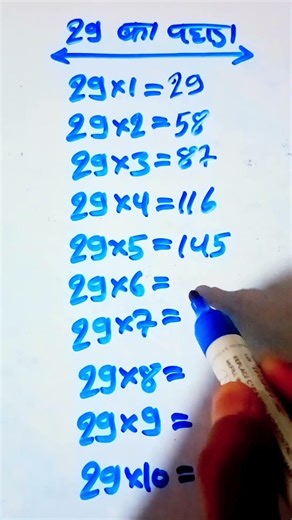 29 का पहाड़ा
29×1=29
29×2=58
29×3=87
29×4=116
29×5=145
29×6=
29×7=
29×8=
29×9=
29×10=